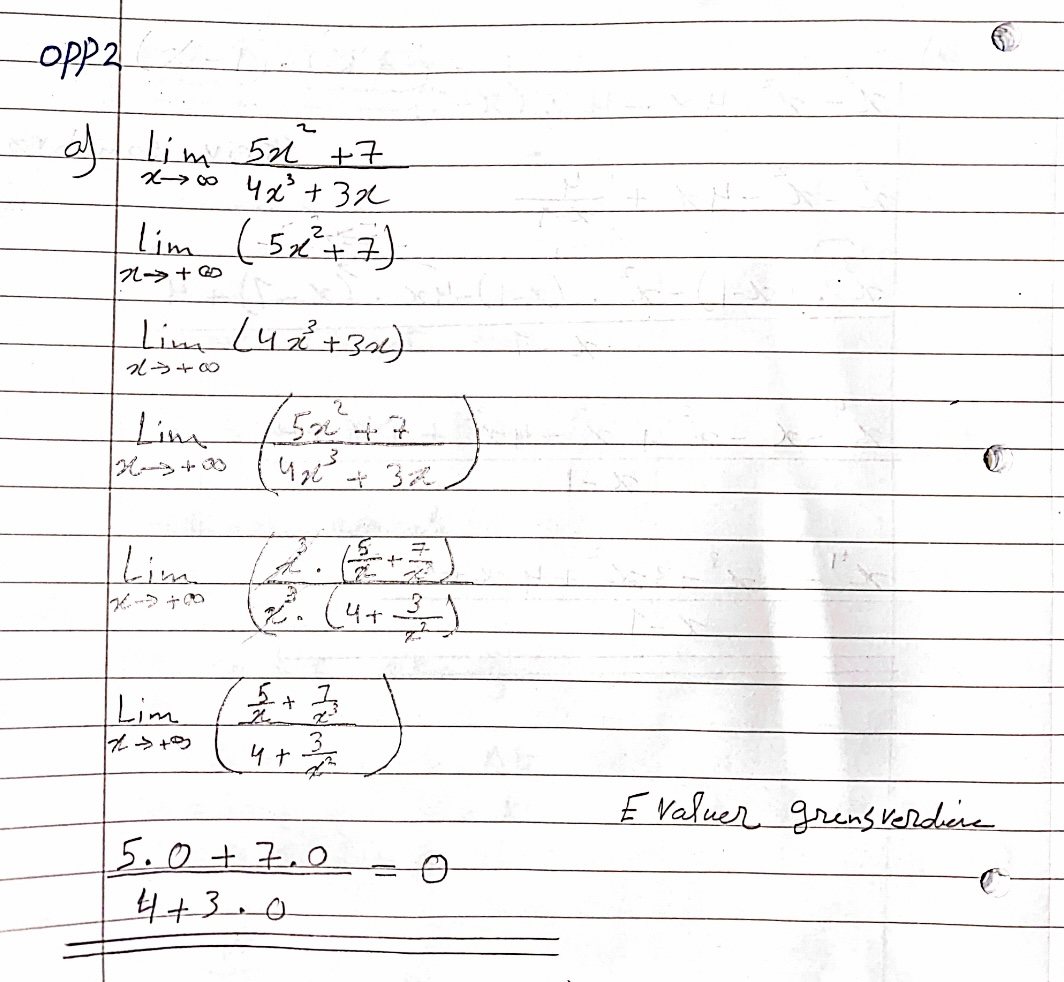 OPP2
a) Lim x→∞ (5x² + 7)/(4x³ + 3x)
lim x→+∞ (5x² + 7)
Lim x→+∞ (4x³ + 3x)
Lim x→+∞ ((5x² + 7)/(4x³ + 3x))
Lim x→+∞ (x³ · (5/x + 7/x³))/(x³ · (4 + 3/x²))
Lim x→+∞ ((5/x + 7/x³)/(4 + 3/x²))
Evaluer grensverdiene
(5·0 + 7·0)/(4 + 3·0) = 0